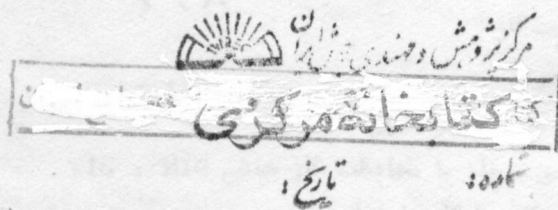 مرکز پژوهش و مهندسی جوش ایران
کتابخانهٔ مرکزی
شماره:
تاریخ: